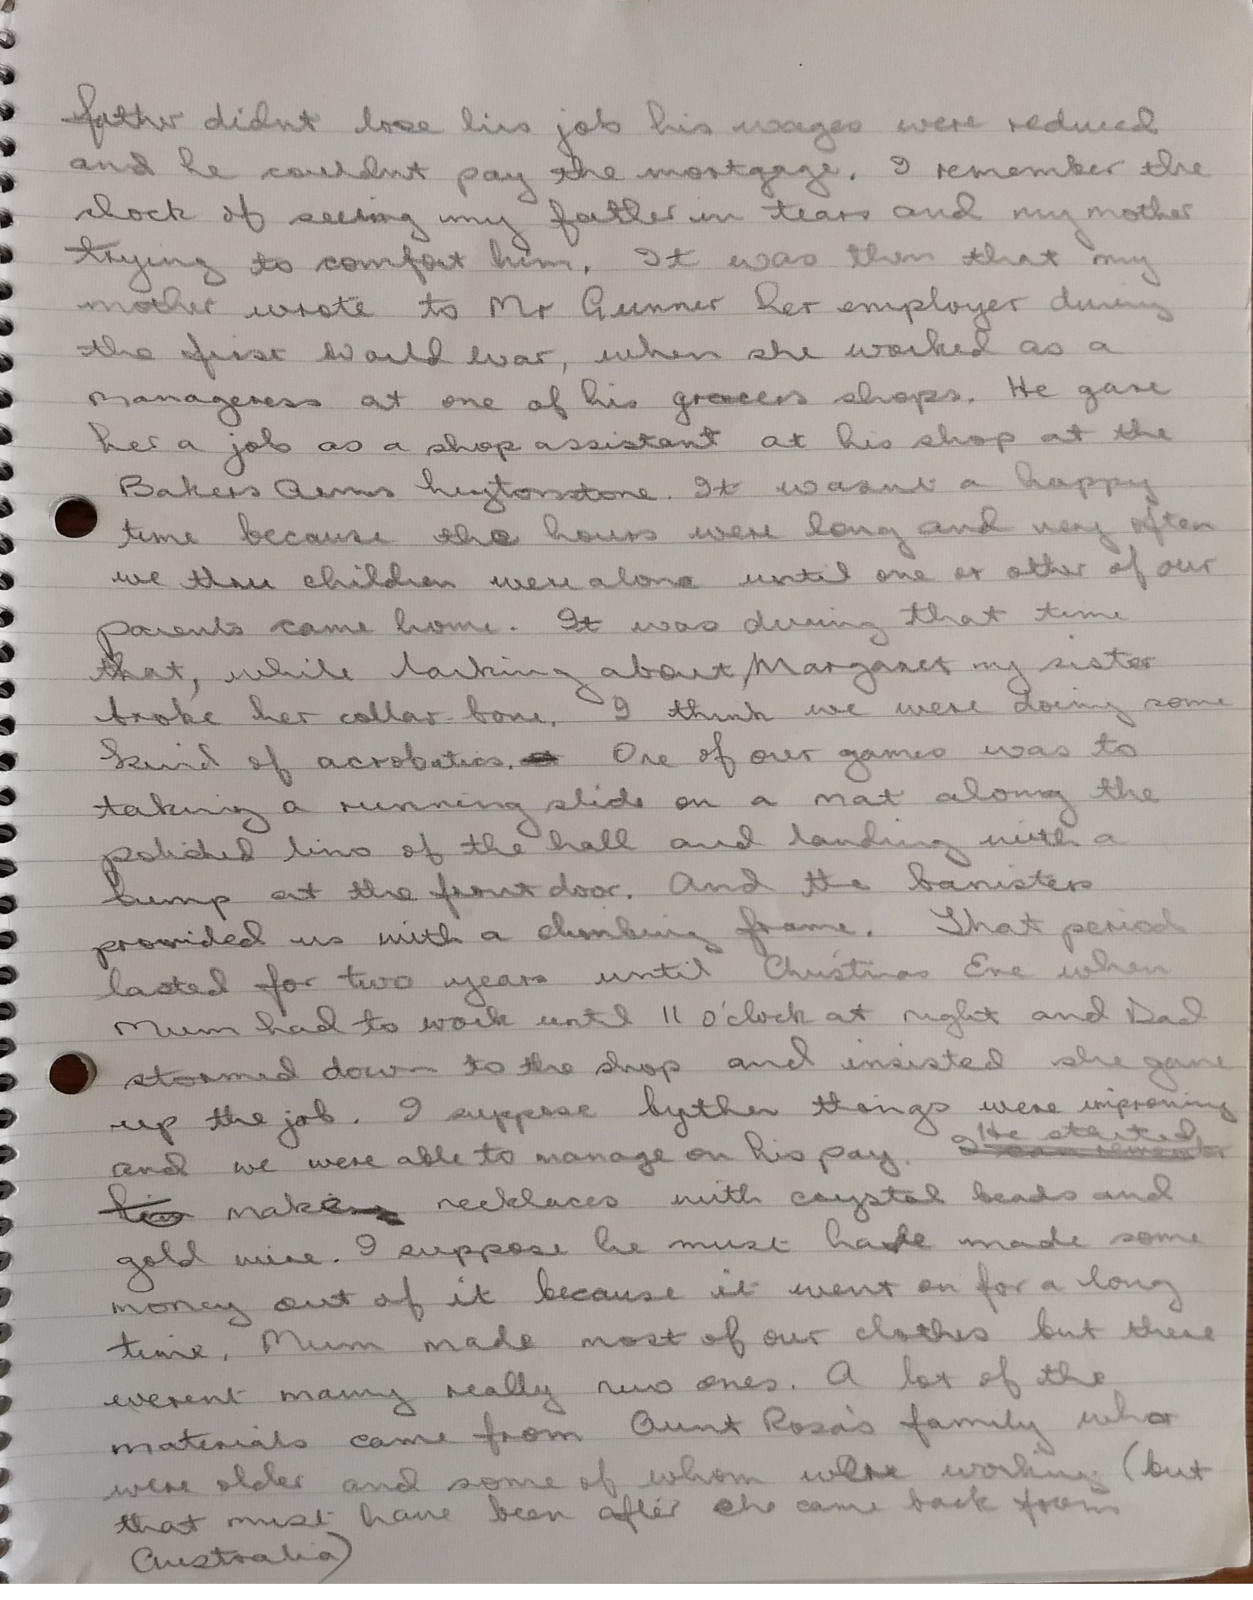 father didnt lose his job his wages were reduced
and he couldnt pay the mortgage. I remember the
shock of seeing my father in tears and my mother
trying to comfort him. It was then that my
mother wrote to Mr Gunner her employer during
the first World War, when she worked as a
manageress at one of his grocers shops. He gave
her a job as a shop assistant at his shop at the
Bakers Arms Leytonstone. It wasnt a happy
time because the hours were long and very often
we three children were alone until one or other of our
parents came home. It was during that time
that, while larking about, Margaret my sister
broke her collar-bone. I think we were doing some
kind of acrobatics. One of our games was to
taking a running slide on a mat along the
polished lino of the hall and landing with a
bump at the front door. And the banisters
provided us with a climbing frame. That period
lasted for two years until Christmas Eve when
Mum had to work until 11 o'clock at night and Dad
stormed down to the shop and insisted she gave
up the job. I suppose by then things were improving
and we were able to manage on his pay. He started
making necklaces with crystal beads and
gold wire. I suppose he must have made some
money out of it because it went on for a long
time. Mum made most of our clothes but there
werent many really new ones. A lot of the
materials came from Aunt Rosa's family who
were older and some of whom were working (but
that must have been after she came back from
Australia)